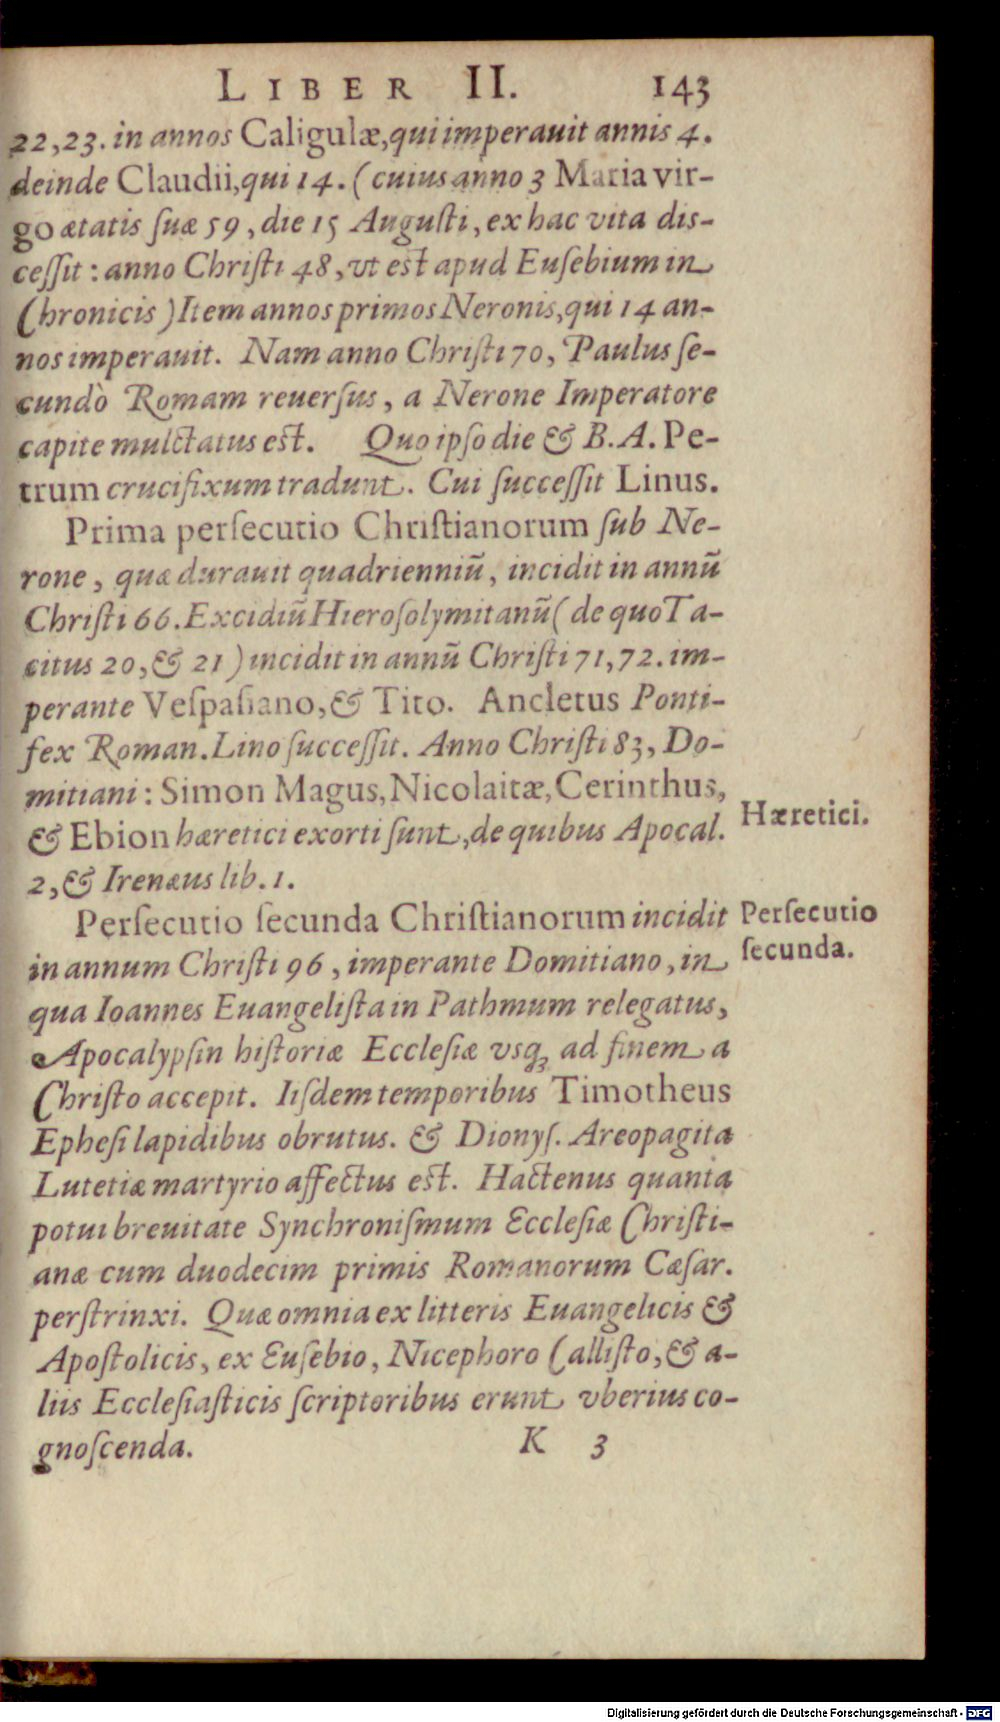 LIBER II. 143
22,23. in annos Caligulæ, qui imperauit annis 4.
deinde Claudii, qui 14. (cuius anno 3 Maria vir-
go ætatis ſuæ 59, die 15 Auguſti, ex hac vita diſ-
ceſſit: anno Chriſti 48, vt eſt apud Euſebium in
Chronicis) Item annos primos Neronis, qui 14 an-
nos imperauit. Nam anno Chriſti 70, Paulus ſe-
cundò Romam reuerſus, a Nerone Imperatore
capite mulctatus eſt. Quo ipſo die & B. A. Pe-
trum crucifixum tradunt. Cui ſucceſſit Linus.
Prima perſecutio Chriſtianorum ſub Ne-
rone, quæ durauit quadrienniũ, incidit in annũ
Chriſti 66. Excidiũ Hieroſolymitanũ (de quo Ta-
citus 20, & 21) incidit in annũ Chriſti 71, 72. im-
perante Veſpaſiano, & Tito. Ancletus Ponti-
fex Roman. Lino ſucceſſit. Anno Chriſti 83, Do-
mitiani: Simon Magus, Nicolaitæ, Cerinthus,
& Ebion hæretici exorti ſunt, de quibus Apocal.
2, & Irenæus lib. 1.
Hæretici.
Perſecutio ſecunda Chriſtianorum incidit
in annum Chriſti 96, imperante Domitiano, in
qua Ioannes Euangeliſta in Pathmum relegatus,
Apocalypſin hiſtoriæ Eccleſiæ vsq; ad finem a
Chriſto accepit. Iiſdem temporibus Timotheus
Epheſi lapidibus obrutus. & Dionyſ. Areopagita
Lutetiæ martyrio affectus eſt. Hactenus quanta
potui breuitate Synchroniſmum Eccleſiæ Chriſti-
anæ cum duodecim primis Romanorum Cæſar.
perſtrinxi. Quæ omnia ex litteris Euangelicis &
Apoſtolicis, ex Euſebio, Nicephoro Calliſto, & a-
liis Eccleſiaſticis ſcriptoribus erunt vberius co-
gnoſcenda.
Perſecutio
ſecunda.
K 3
Digitalisierung gefördert durch die Deutsche Forschungsgemeinschaft - DFG